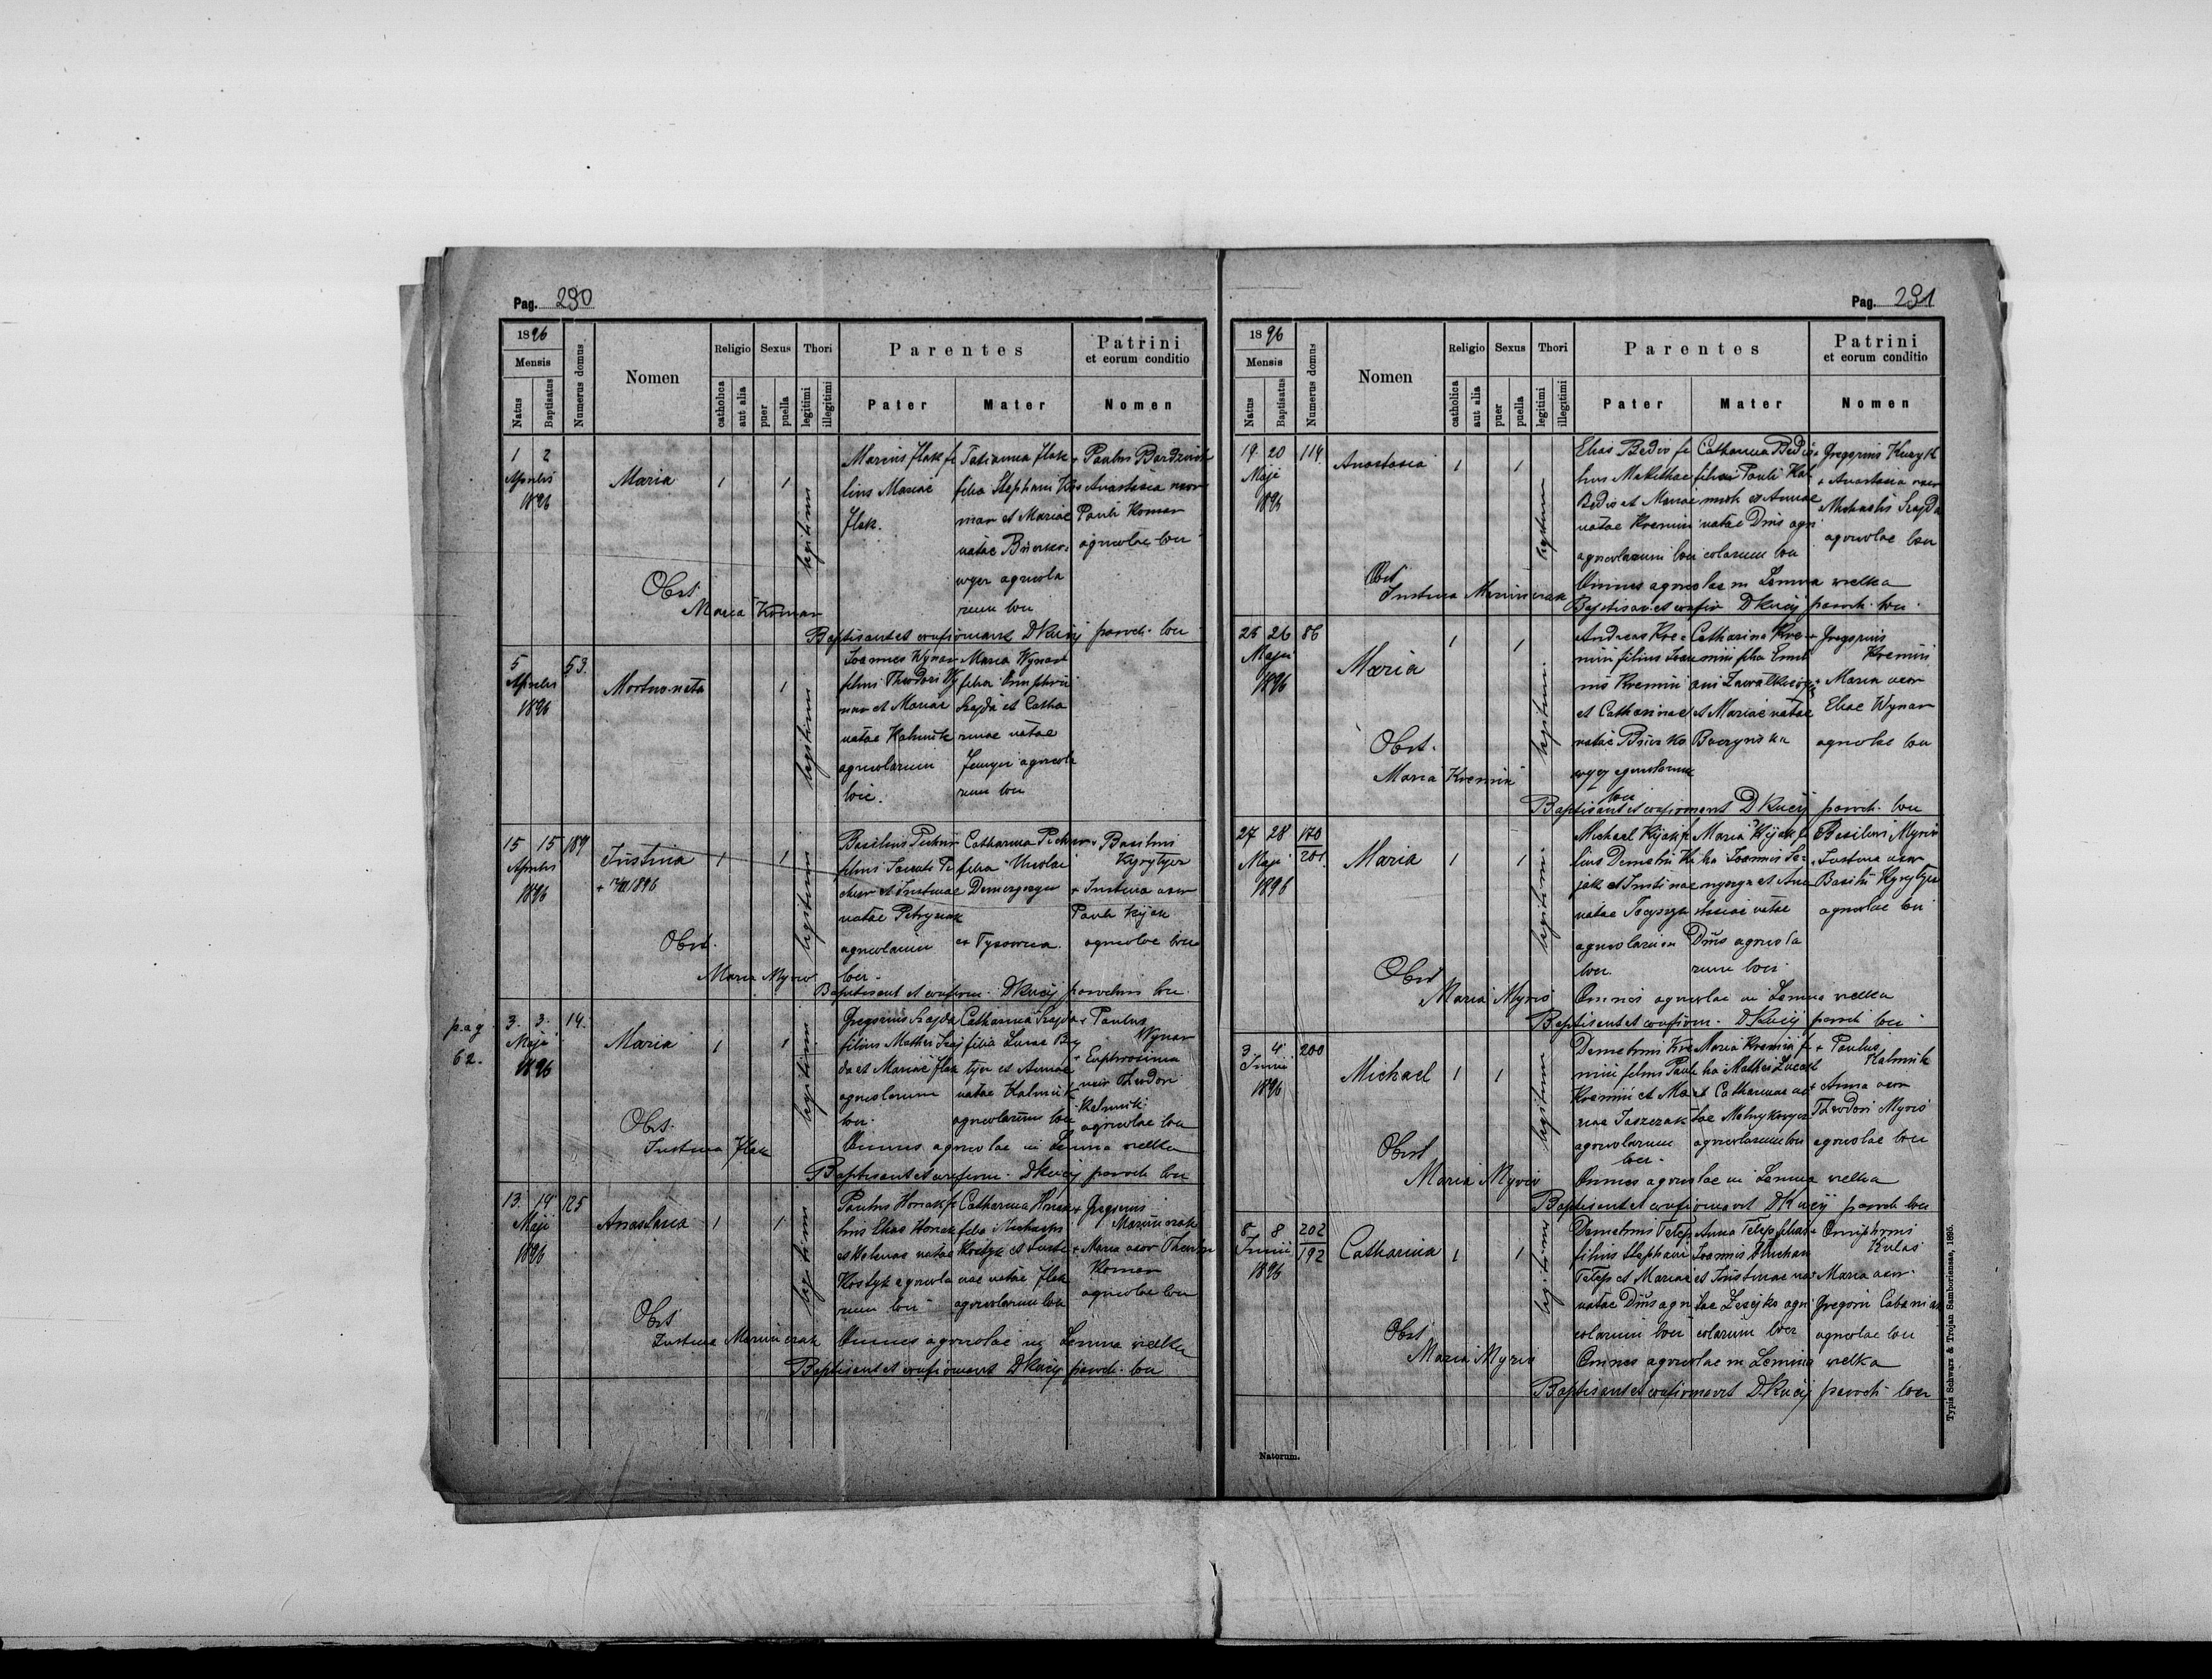 Pag. 290
1896
Mensis
Natus
Baptisatus
Numerus domus
Nomen
Religio
catholica
aut alia
Sexus
puer
puella
Thori
legitimi
illegitimi
Parentes
Pater
Mater
Patrini
et eorum conditio
Nomen
1 2
Aprilis
1896
Maria
1 1
legitimi
Marcus Ilak fi
lius Mariae
Ilak.
Tatianna Ilak
filia Stephani Ko
man et Mariae
natae
agricola
rum loci
+ Paulus
+ Anastasia uxor
Pauli Koman
agricolae loci
Obst
Maria Koman
Baptisavit et confirmavit DKucij paroch. loci
5
Aprilis
1896
53.
Mortuo-nata
1
legitimi
Joannes Wynar
filius Theodori Wy
nar et Mariae
natae Kalmuk
agricolarum
loci.
Maria Wynar
filia Onuphrii
Szajda et Catha
rinae natae
agricola
rum loci
15 15
Aprilis
1896
189
Justina
1 1
legitimi
Basilius
filius
et Justinae
natae Petryszak
agricolarum
loci.
Catharina
filia Nicolai
ex Tyssowica.
+ Basilius
Kyrytyez
+ Justina uxor
Pauli Kijak
agricolae loci
Obst.
Maria Myrio
Baptisavit et confirm. DKucij parochus loci
pag
62.
3. 3.
Maji
1896
14.
Maria
1 1
legitimi
Gregorius Szajda
filius Mathei Szaj
da et Mariae Ilak
agricolarum
loci.
Catharina Szajda
filia Lucae
et Annae
natae Kalmuk
agricolarum loci
+ Paulus
Wynar
+ Euphrosinia
uxor Theodori
Kalmuk
agricolae loci
Obst.
Justina Ilak
Omnes agricolae in Lemna wielka
Baptisavit et confirm. DKucij paroch loci
13. 14
Maji
1896
125
Anastasia
1 1
legitimi
Paulus Hornak fi
lius Elias Hornak
et Helenae natae
Kostyk agricola
rum loci
Catharina Hornak
filia Michaelis
Kostyk et Justi
nae natae Ilak
agricolarum loci
+ Gregorius
Marunczak
+ Maria uxor Theodori
Koman
agricolae loci
Obst
Justina Marunczak
Omnes agricolae in Lemna wielka
Baptisavit et confirmavit DKucij paroch. loci
Pag. 291
1896
Mensis
Natus
Baptisatus
Numerus domus
Nomen
Religio
catholica
aut alia
Sexus
puer
puella
Thori
legitimi
illegitimi
Parentes
Pater
Mater
Patrini
et eorum conditio
Nomen
19. 20
Maji
1896
114.
Anastasia
1 1
legitimi
Elias Bedio fi
lius
Bedio et Mariae
natae Kremin
agricolarum loci
Catharina Bedio
filia Pauli Kal
muk et Annae
natae Dnis agri
colarum loci
+ Gregorius
+ Anastasia uxor
Michaelis Szajda
agricolae loci
Obst
Justina Marunczak
Omnes agricolae in Lemna wielka
Baptisavit et confir DKucij paroch. loci.
25 26
Maji
1896
86
Maria
1 1
legitimi
Andreas Kre
min filius Joan
nis Kremin
et Catharinae
natae
agricolarum
loci
Catharina Kre
min filia Emili
ani
et Mariae natae
+ Gregorius
Kremin
+ Maria uxor
Eliae Wynar
agricolae loci
Obst.
Maria Kremin
Baptisavit et confirmavit DKucij paroch. loci
27 28
Maji
1896
170
201.
Maria
1 1
legitimi
Michael Kijak fi
lius Demetri Ki
jak et Justinae
natae
agricolarum
loci.
Maria Kijak fi
lia Joannis
et Ana
stasiae natae
Dnis agricola
rum loci
Basilius Myrio
+ Justina uxor
Basilii Kyrytyez
agricolae loci
Obst
Maria Myrio
Omnes agricolae in Lemna wielka
Baptisavit et confirm. DKucij paroch loci
3 4
Junii
1896
200
Michael
1 1
legitimi
Demetrius Kre
min filius Pauli
Kremin et Ma
riae Jaszczak
agricolarum
loci.
Maria Kremin fi
lia Mathei
et Catharinae na
tae
agricolarum loci
+ Paulus
Kalmuk
+ Anna uxor
Theodori Myrio
agricolae loci
Obst
Maria Myrio
Omnes agricolae in Lemna wielka
Baptisavit et confirmavit DKucij paroch loci
8 8
Junii
1896
202
192
Catharina
1 1
legitimi
Demetrius Telep
filius Stephani
Telep et Mariae
natae Dnis agri
colarum loci
Anna Telep filia
Joannis
et Justinae na
tae agri
colarum loci
+ Onuphrius
Kulas
+ Maria uxor
Gregorii
agricolae loci
Obst
Maria Myrio
Omnes agricolae in Lemna wielka
Baptisavit et confirmavit DKucij paroch loci
Natorum.
Typis Schwarz & Trojan Samboriensa, 1895.